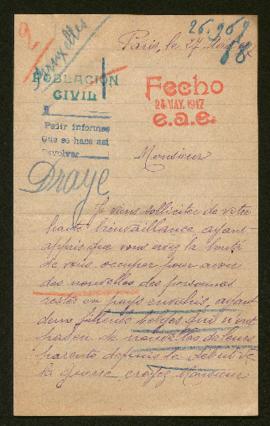 Bruxelles
Paris, le 27
POBLACIÓN
CIVIL
Fecho
24 MAY. 1917
e.a.e.
Pedir informes
Que se haga así
Devolver
Monsieur
Draye
Je viens solliciter de votre
haute bienveillance, ayant
appris que vous avez la bonté
de vous occuper pour avoir
des nouvelles des personnes
restés en pays envahis, ayant
deux filleuls belges qui n'ont
pas de nouvelles de leurs
parents depuis le début de
la guerre croyez Monsieur